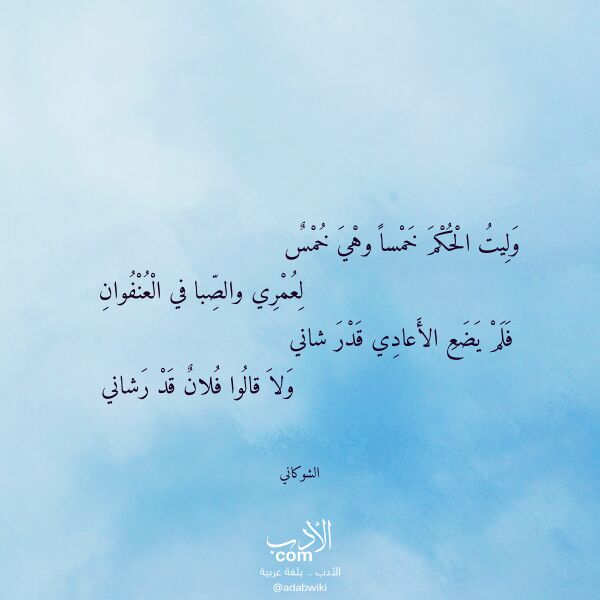 وَلِيتُ الْحُكْمَ خَمْساً وهْيَ خُمْسٌ
لِعُمْرِي والصِّبا في الْعُنْفُوانِ
فَلَمْ يَضَعِ الأَعادِي قَدْرَ شاني
وَلاَ قالُوا فُلانٌ قَدْ رَشاني
الشوكاني
الأدب
com
الأدب .. بلغة عربية
@adabwiki